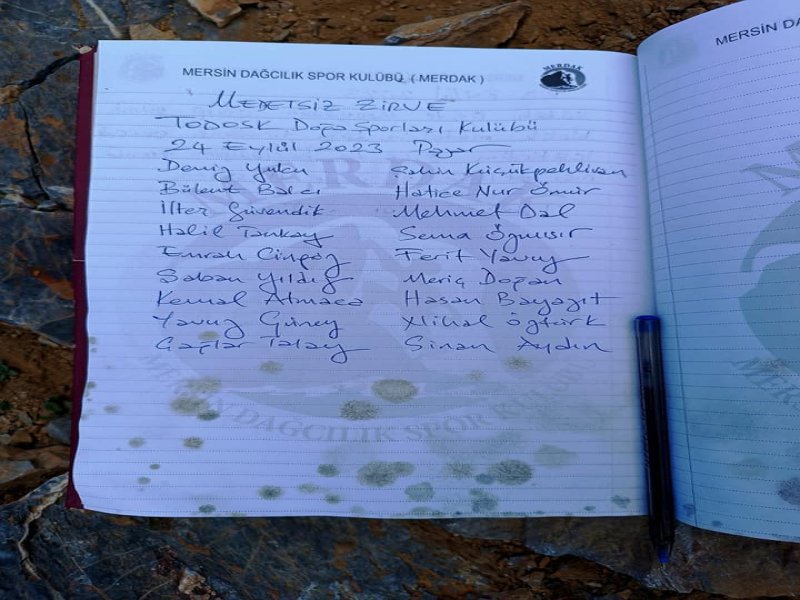 MERSİN DAĞCILIK SPOR KULÜBÜ ( MERDAK )
MERDAK
MERSİN DA
MEDETSİZ ZİRVE
TODOSK Doğa Sporları Kulübü
24 Eylül 2023 Pazar
Deniz Şahin Küçükpehlivan
Bülent Balcı Hatice Nur Ömür
İlter Güvendik Mehmet Dal
Halil Tankay Sema Öğmısır
Emrah Cingöz Ferit Yavuz
Şaban Yıldız Meriç Doğan
Kemal Atmaca Hasan Bayazıt
Yavuz Güney Nihal Öztürk
Çağlar Talay Sinan Aydın
MERDAK
MERSİN DAĞCILIK SPOR KULÜBÜ